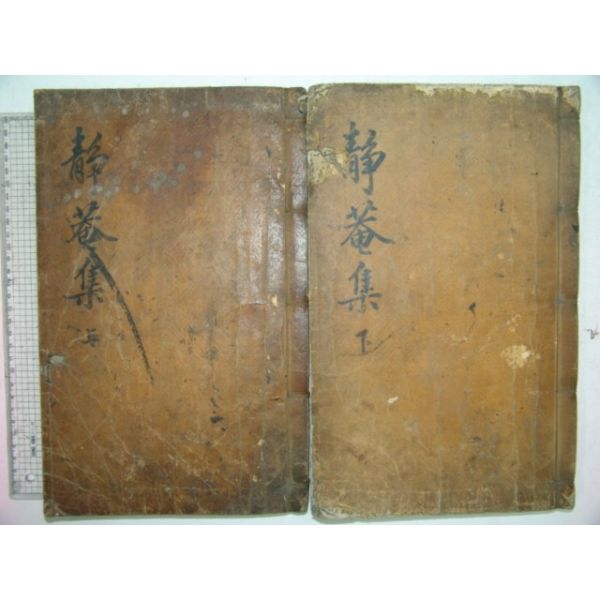 靜菴集
靜菴集 下